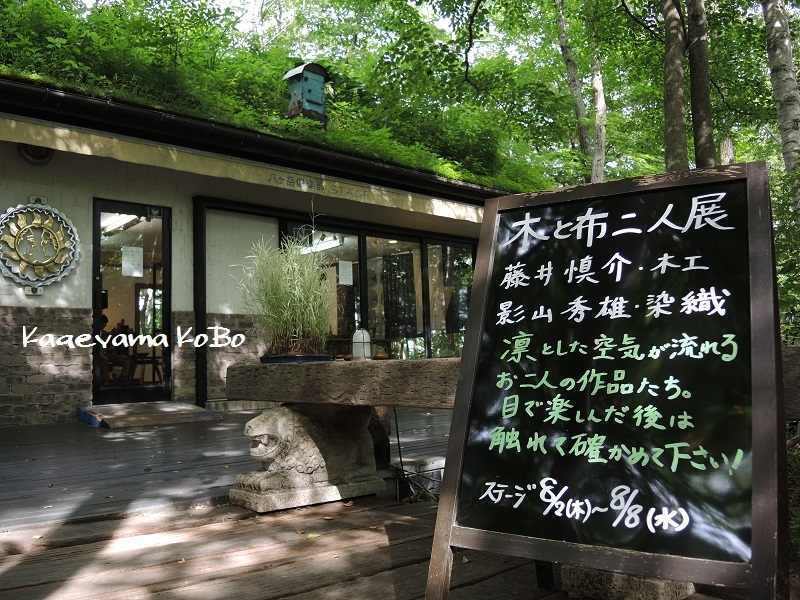 八ヶ岳倶楽部 STAGE
Kageyama KoBo
木と布二人展
藤井慎介・木工
影山秀雄・染織
凛とした空気が流れる
お二人の作品たち。
目で楽しんだ後は
触れて確かめて下さい!
ステージ 8/2(木)~8/8(水)